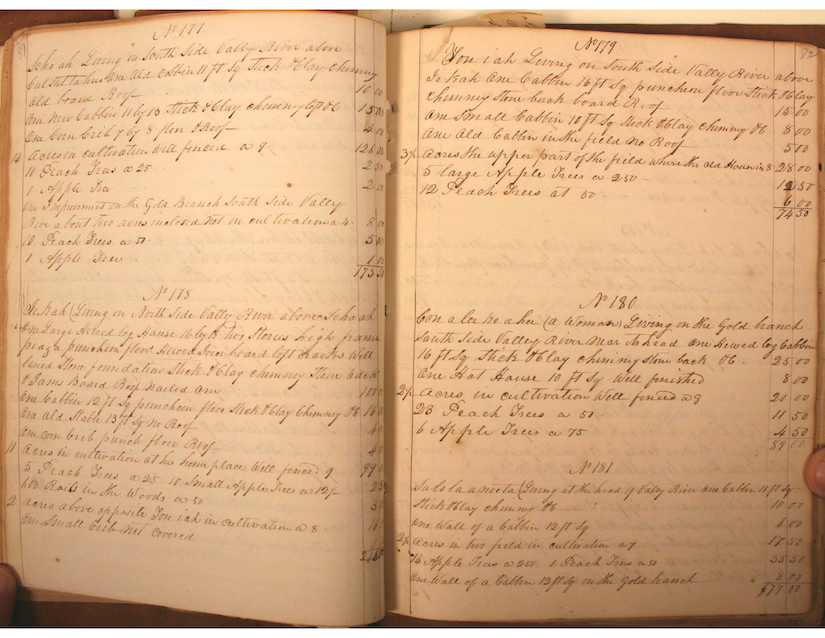 81
No 177
Living in South Side Valley River above
One Old Cabbin 11 ft Sq Stick & Clay chimny
old board Roof 10 00
One New Cabbin 11 by 13 Stick & Clay chimny loft &c 15 00
One Corn Crib 7 by 8 floor & Roof 4 00
14 Acres in cultivation well fenced a 9 126 00
10 Peach Trees a 25 2 50
1 Apple Tree 2 00
One Improvement on the Gold Branch South Side Valley
River about two acres inclosed Not in cultivation a 4 8 00
10 Peach Trees a 50 5 00
1 Apple Tree 1 00
173 50
No 178
Living on North Side Valley River above
One Large Hewed log House 16 by two Stories high
piaza puncheon floor Hewed board loft Well
Stone foundation Stick & Clay chimny Stone
& Jams Board Roof Nailed one
One Cabbin 12 ft Sq puncheon floor Stick & Clay Chimny &c 16
One Old Stable 13 ft Sq No Roof
One corn Crib punch floor Roof
11 Acres in cultivation at his home place Well fenced 9 99
5 Peach Trees a 25 10 Small Apple Trees a 12½
Rails in the Woods a 50
2 acres above opposite Ton i ah in cultivation a 8 16
One Small Crib Not Covered
82
No 179
Ton i ah Living on South Side Valley River above
One Cabbin 16 ft Sq puncheon floor Stick & Clay
Chimney Stone back board Roof 15 00
One Small Cabbin 10 ft Sq Stick & Clay Chimny &c 8 00
One Old Cabbin in the field No Roof 5 00
3½ Acres the upper part of the field where the old House is 8 28 00
5 large Apple Trees a 250 12 50
12 Peach Trees at 50 6 00
74 50
No 180
(a Woman) Living on the Gold branch
South Side Valley River Near head One Hewed log Cabbin
16 ft Sq Stick & Clay chimny Stone back &c 25 00
One Hot House 10 ft Sq Well finished 8 00
2½ Acres in cultivation Well fenced a 8 20 00
23 Peach Trees a 50 11 50
6 Apple Trees a 75 4 50
No 181
Living at the head of Valley River One Cabbin 11 ft Sq
Stick & Clay chimny &c 10 00
One Wall of a Cabbin 12 ft Sq 6 00
2½ Acres in two field in cultivation a 7 17 50
Apple Trees a 250 1 Peach Tree a
One Wall of a Cabbin 12 ft Sq on the Gold branch 8 00
$77 00